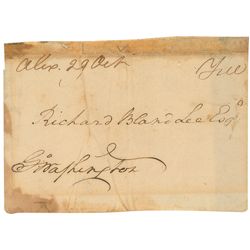 Alex. 29 Oct Free
Richard Bland Lee Esqr
Go Washington